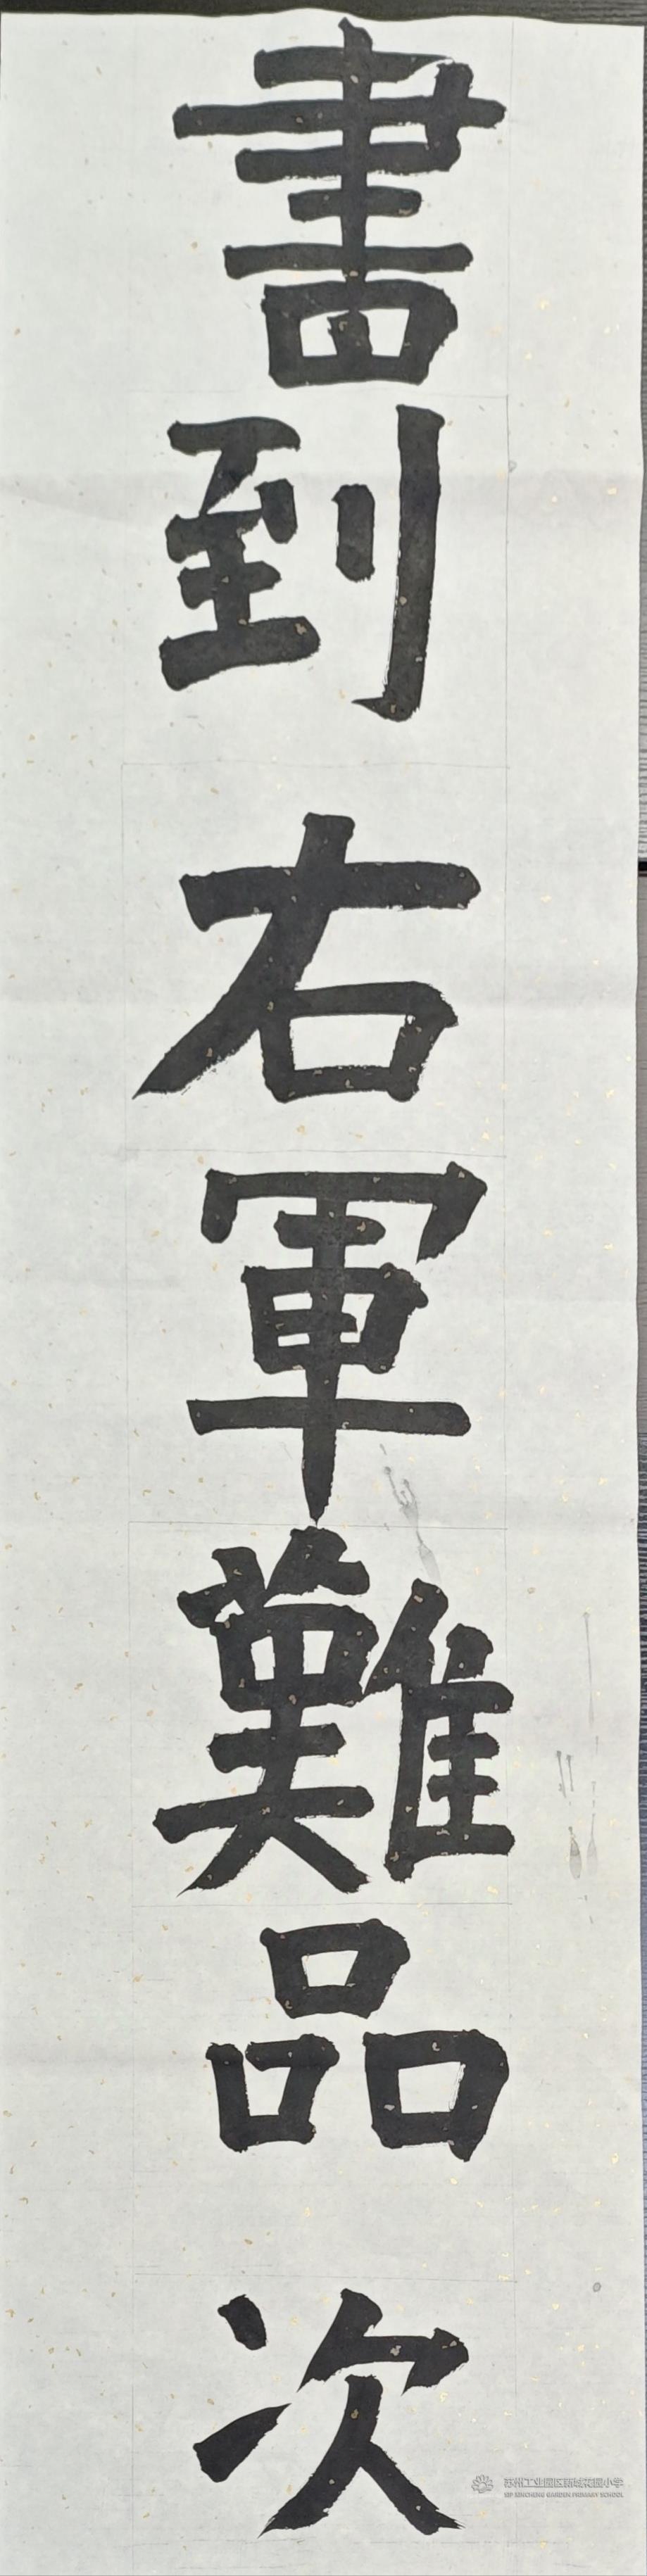 書到右軍難品次
苏州工业园区新城花园小学
SIP XINCHENG GARDEN PRIMARY SCHOOL